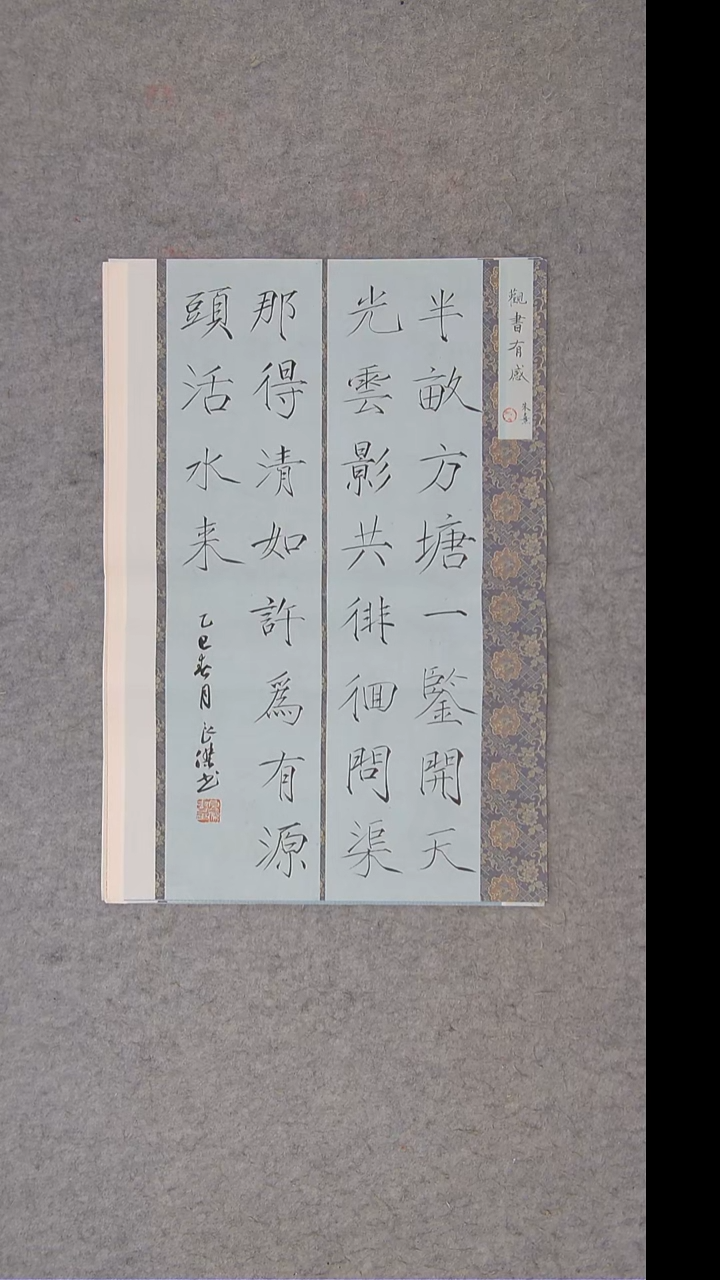 觀書有感
朱熹
半畝方塘一鑒開天
光雲影共徘徊問渠
那得清如許爲有源
頭活水来
乙巳春月
傑书